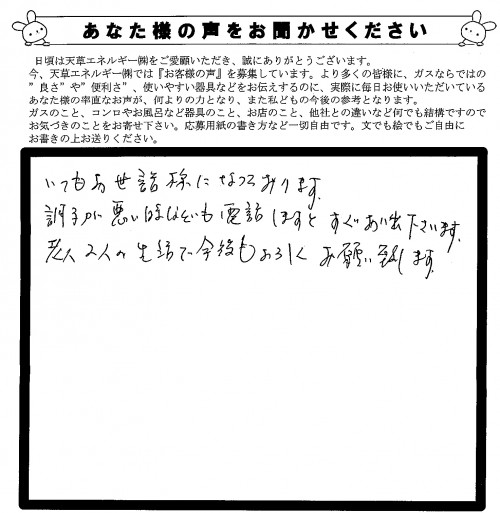 あなた様の声をお聞かせください
日頃は天草エネルギー㈱をご愛顧いただき、誠にありがとうございます。
今、天草エネルギー㈱では『お客様の声』を募集しています。より多くの皆様に、ガスならではの
”良さ”や”便利さ”、使いやすい器具などをお伝えするのに、実際に毎日お使いいただいている
あなた様の率直なお声が、何よりの力となり、また私どもの今後の参考となります。
ガスのこと、コンロやお風呂など器具のこと、お店のこと、他社との違いなど何でも結構ですので
お気づきのことをお寄せ下さい。応募用紙の書き方など一切自由です。文でも絵でもご自由に
お書きの上お送りください。
いつもお世話様になっております。
調子が悪い 電話しますと すぐ 下さいます。
老人2人の生活で今後もよろしくお願い致します。